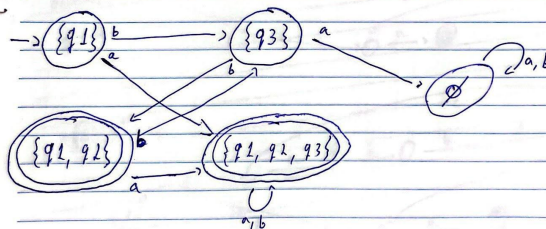 {q1} b {q3} a
a b a, b
∅
{q1, q2} b {q1, q2, q3}
a
a, b